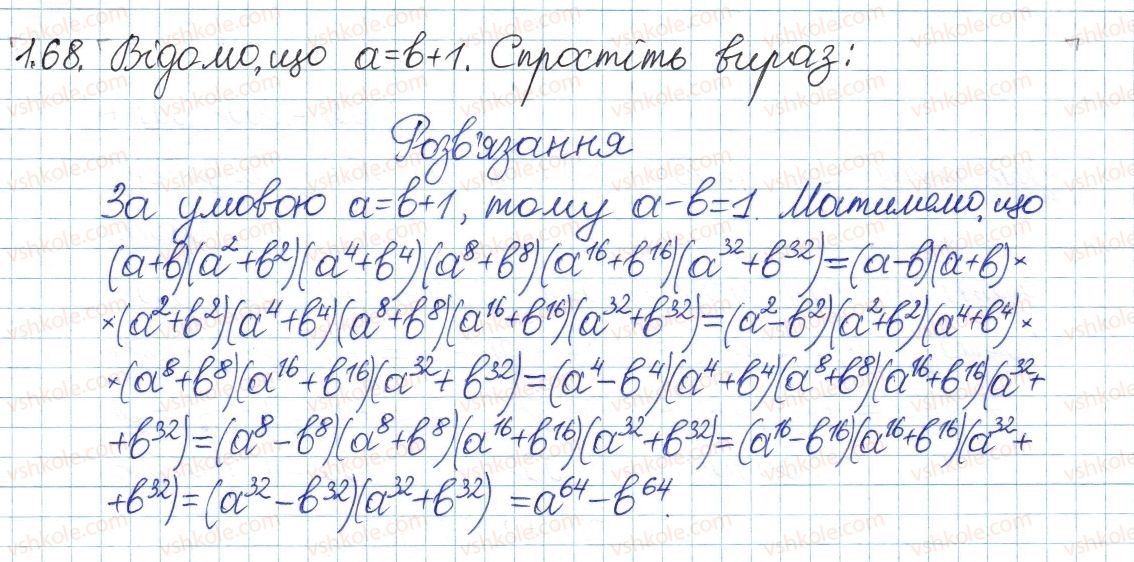 1.68. Відомо, що a=b+1. Спростіть вираз:
Розв'язання
За умовою a=b+1, тому a-b=1. Матимемо, що
(a+b)(a²+b²)(a⁴+b⁴)(a⁸+b⁸)(a¹⁶+b¹⁶)(a³²+b³²)=(a-b)(a+b)×
×(a²+b²)(a⁴+b⁴)(a⁸+b⁸)(a¹⁶+b¹⁶)(a³²+b³²)=(a²-b²)(a²+b²)(a⁴+b⁴)×
×(a⁸+b⁸)(a¹⁶+b¹⁶)(a³²+b³²)=(a⁴-b⁴)(a⁴+b⁴)(a⁸+b⁸)(a¹⁶+b¹⁶)(a³²+
+b³²)=(a⁸-b⁸)(a⁸+b⁸)(a¹⁶+b¹⁶)(a³²+b³²)=(a¹⁶-b¹⁶)(a¹⁶+b¹⁶)(a³²+
+b³²)=(a³²-b³²)(a³²+b³²)=a⁶⁴-b⁶⁴.